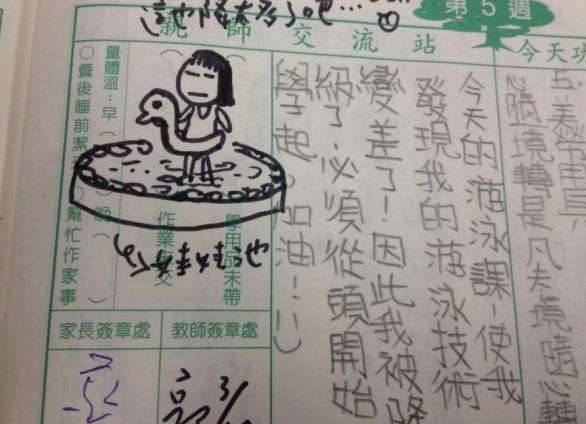 這也降太多了吧…
第5週
親師交流站
今天功
五、美術用具
心隨境轉是凡夫,境隨心轉
今天的游泳課,使我
發現我的游泳技術
變差了!因此我被降
級了,必須從頭開始
學起。加油!:)
量體溫:早( )晚( )
○餐後睡前潔
○幫忙作家事
作業
學用品未帶
家長簽章處
教師簽章處
3/